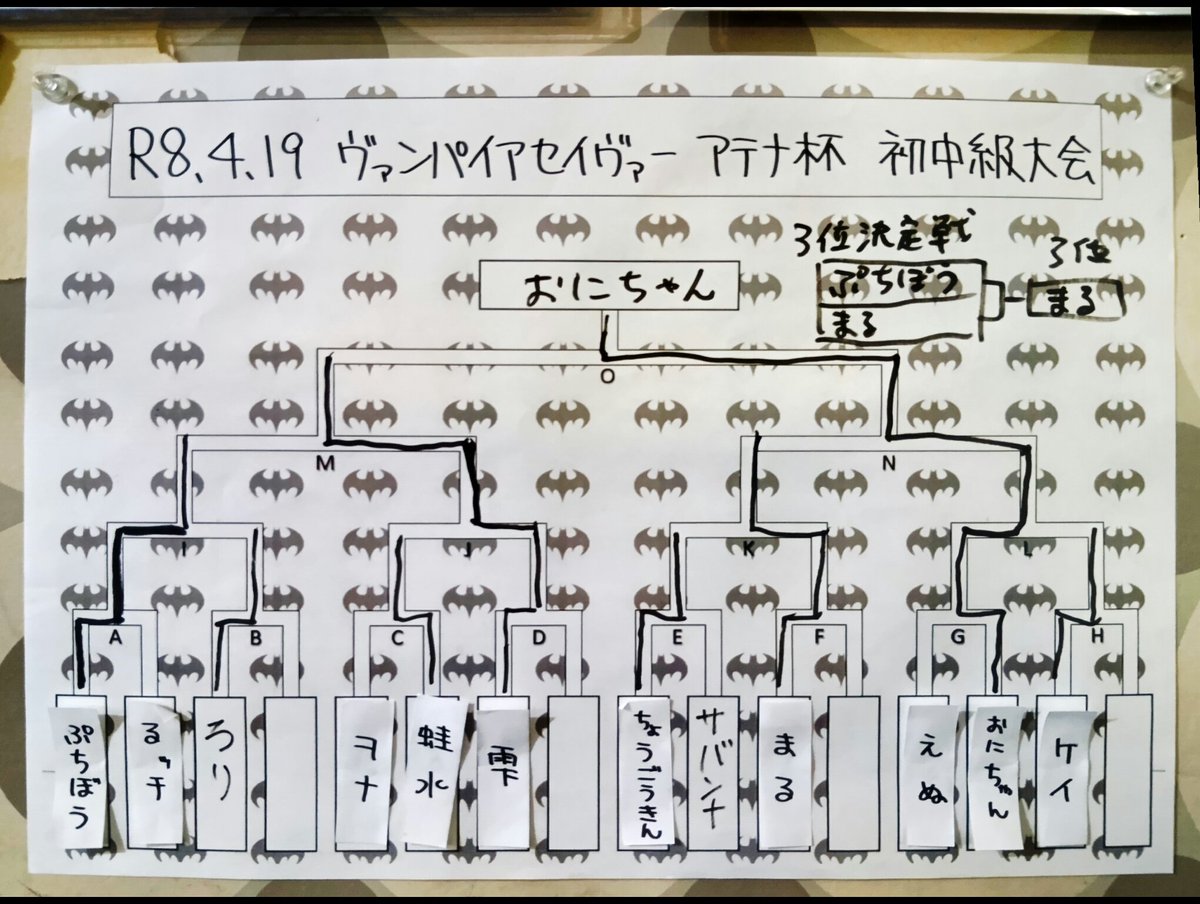 R8.4.19 ヴァンパイアセイヴァー アテナ杯 初中級大会
3位決定戦
ぷちぼう
まる
3位
まる
おにちゃん
O
M
N
I
J
K
L
A
B
C
D
E
F
G
H
ぷちぼう
るッチ
ろり
ヲナ
蛙水
雫
ちょうごうきん
サバンナ
まる
えぬ
おにちゃん
ケイ